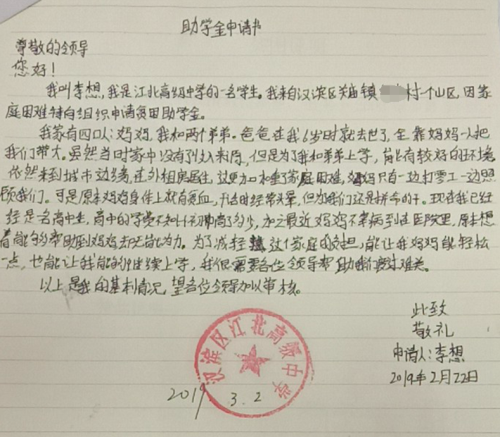 助学金申请书
尊敬的领导
您好!
我叫李想,我是江北高级中学的一名学生。我来自汉滨区关庙镇 村一个山区,因家
庭困难特向组织申请贫困助学金。
我家有四口人:妈妈,我和两个弟弟。爸爸在我6岁时就去世了,全靠妈妈一人把
我们带大。虽然当时家中没有收入来源,但是为了我和弟弟上学,能有较好的环境
依然来到城市边缘,在外租房居住,这更加加重了家庭困难,妈妈只有一边打零工一边照
顾我们。可是原本妈妈身体上就有贫血,干活时经常头晕,但为我们还是拼命的干。现在我已经
是一名高中生,高中的学费不知比初中高了多少,加之最近妈妈不幸病到住医院里,原本想
着能够帮助到妈妈却无能为力。为了减轻 这个家庭的负担,能让我妈妈 轻松
一点,也能让我能够继续上学,我很需要各位领导帮助我们渡过难关。
以上是我的基本情况,望各位领导加以审核。
此致
敬礼
申请人:李想
2019年2月22日
汉滨区江北高级中学
2019 3.2